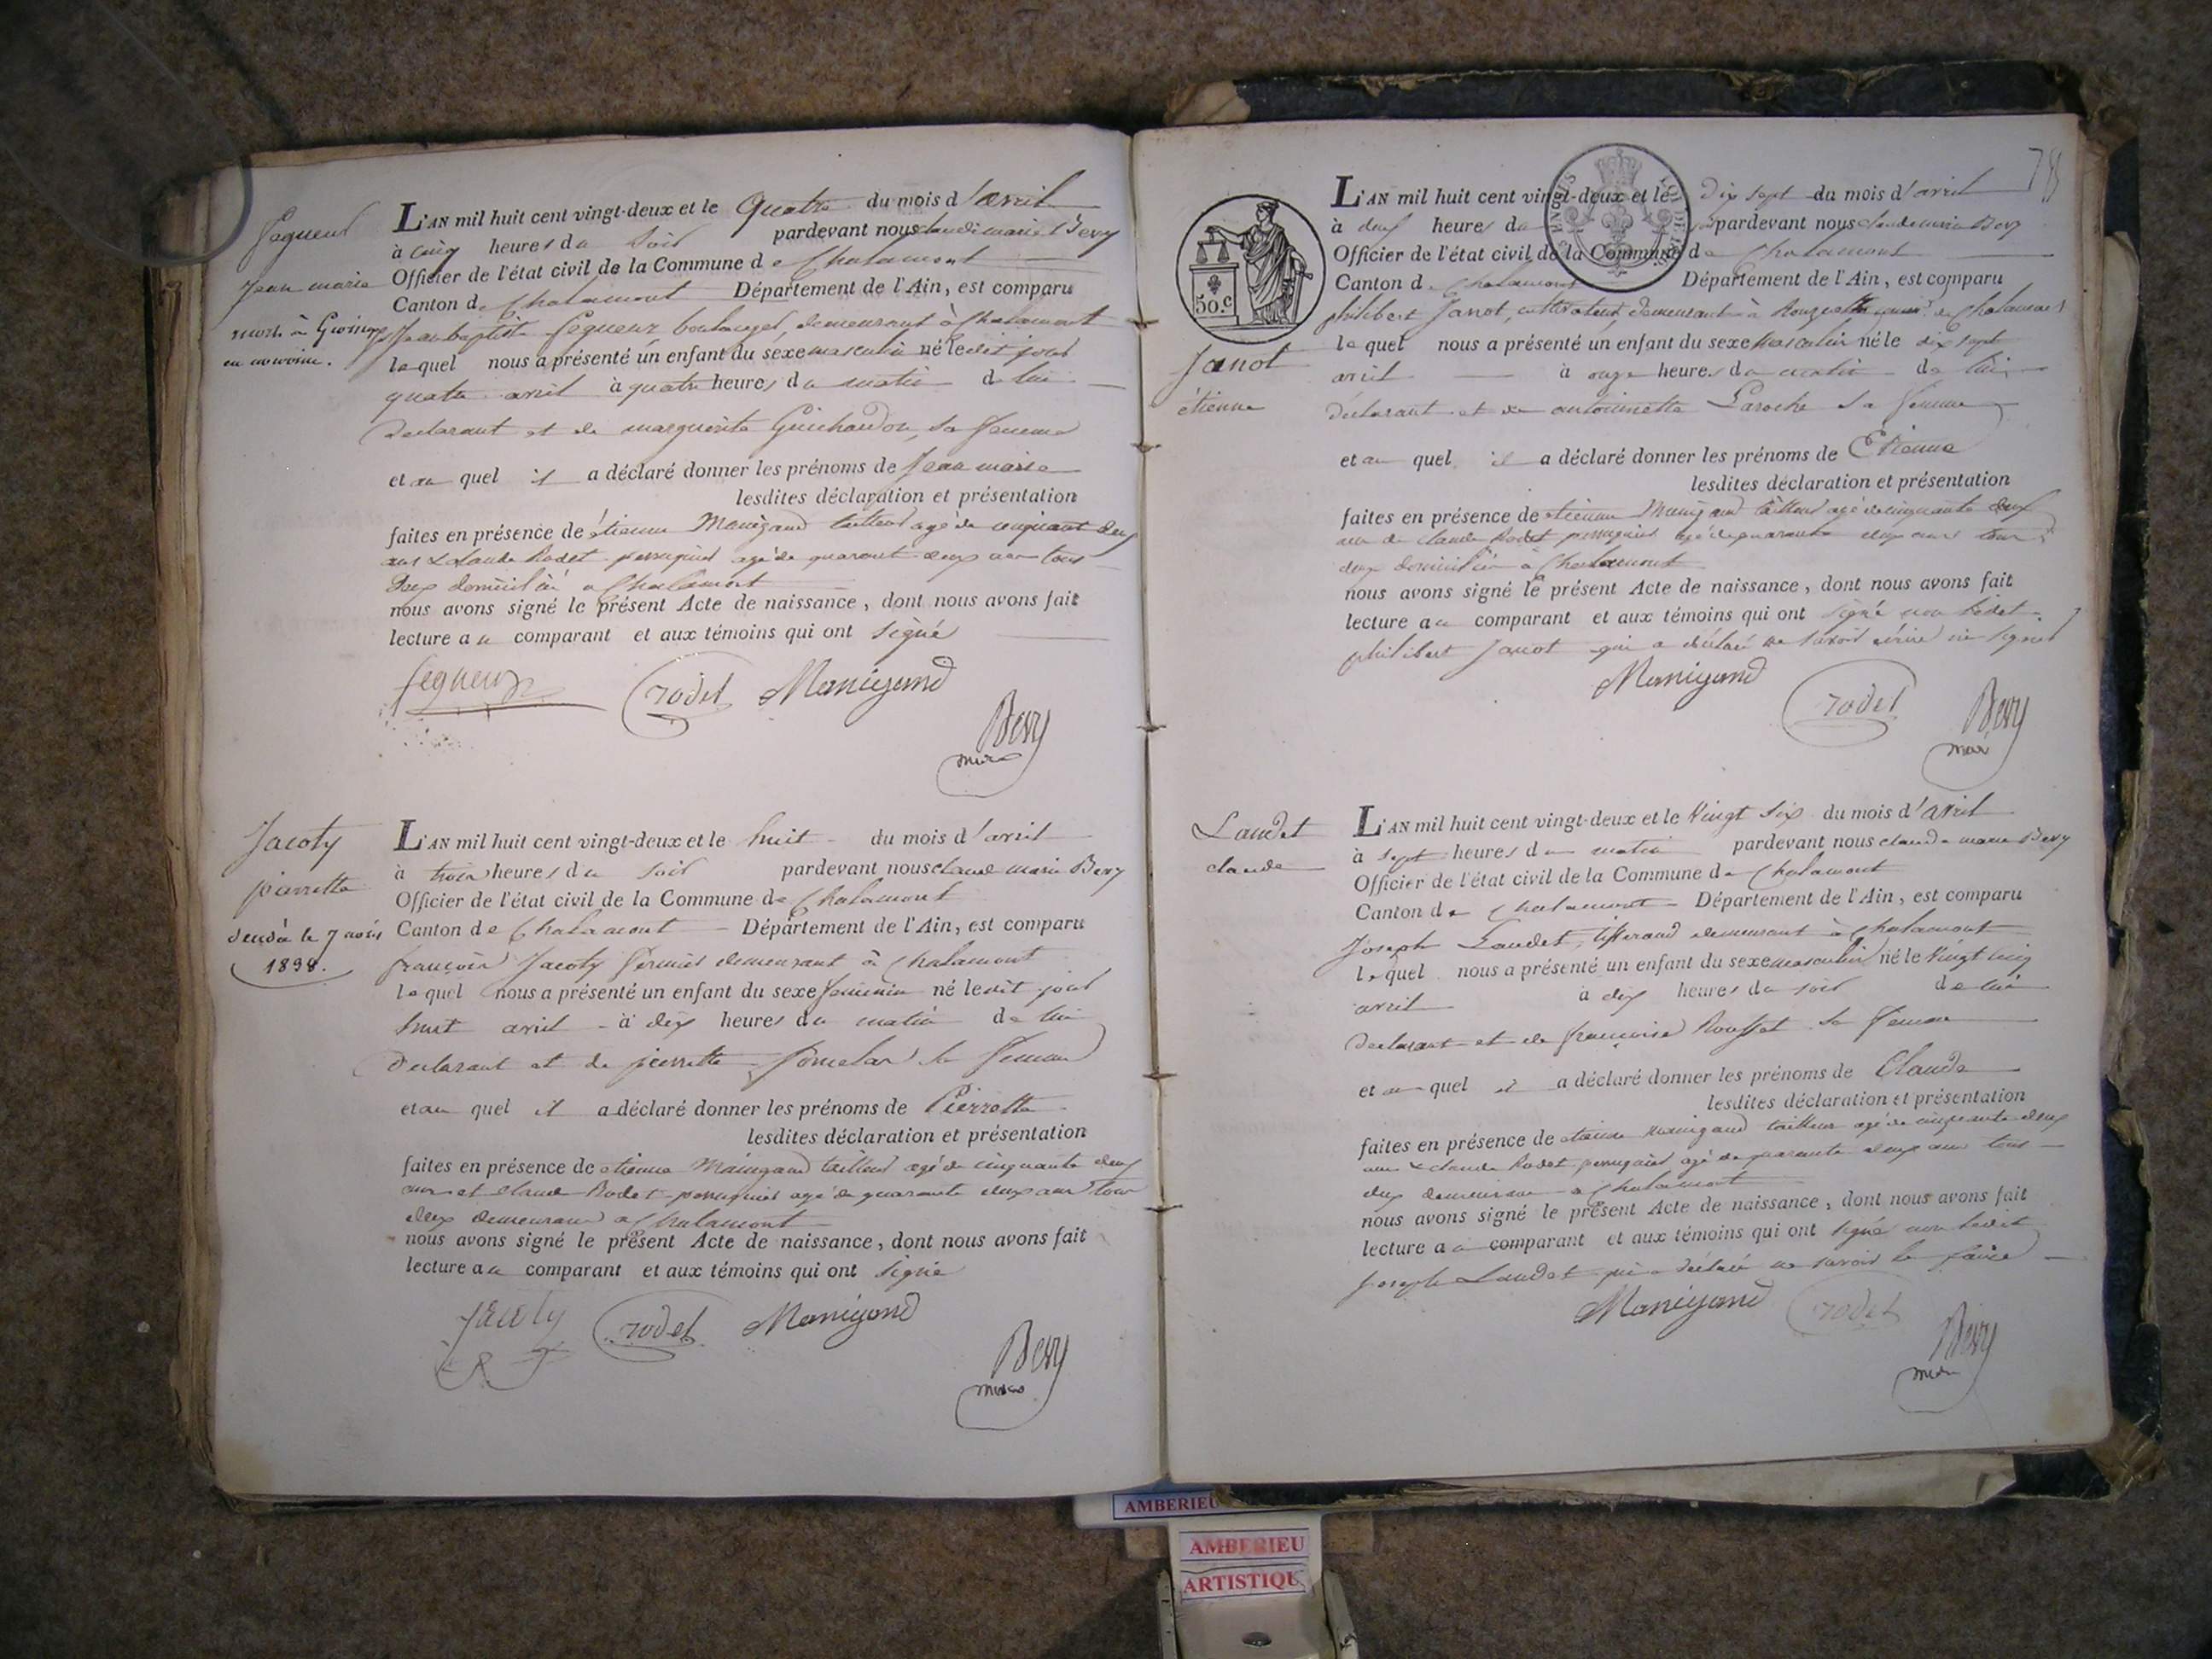 Jean marie
L'AN mil huit cent vingt-deux et le quatre du mois d'avril
à cinq heures du soir pardevant nous claude marie Bevy
Officier de l'état civil de la Commune de Chalamont
Canton de Chalamont Département de l'Ain, est comparu
Jean baptiste boulanger, demeurant à Chalamont
lequel nous a présenté un enfant du sexe masculin né le dit jour
quatre avril à quatre heures du matin de lui
declarant et de marguerite Guichardon, sa femme
et au quel il a déclaré donner les prénoms de Jean marie
lesdites déclaration et présentation
faites en présence de étienne Manigand tailleur agé de cinquante deux
ans & Claude Rodet perruquier agé de quarante deux ans tous
deux domiciliés a Chalamont
nous avons signé le présent Acte de naissance, dont nous avons fait
lecture au comparant et aux témoins qui ont signé
rodet Manigand
Bevy
maire
Jacoty
pierrette
décédée le 7
1898.
L'AN mil huit cent vingt-deux et le huit du mois d'avril
à trois heures du soir pardevant nous claude marie Bevy
Officier de l'état civil de la Commune de Chalamont
Canton de Chalamont Département de l'Ain, est comparu
françois Jacoty fermier demeurant à Chalamont
lequel nous a présenté un enfant du sexe feminin né le dit jour
huit avril à dix heures du matin de lui
declarant et de pierrette sa femme
et au quel il a déclaré donner les prénoms de Pierrette
lesdites déclaration et présentation
faites en présence de etienne Manigand tailleur agé de cinquante deux
ans et claude Rodet perruquier agé de quarante deux ans tous
deux demeurant a Chalamont
nous avons signé le présent Acte de naissance, dont nous avons fait
lecture au comparant et aux témoins qui ont signé
Jacoty rodet Manigand
Bevy
maire
50.c
Janot
étienne
L'AN mil huit cent vingt-deux et le dix sept du mois d'avril
à deux heures du pardevant nous claude marie Bevy
Officier de l'état civil de la Commune de Chalamont
Canton de Chalamont Département de l'Ain, est comparu
philibert Janot, cultivateur, demeurant à de Chalamont
lequel nous a présenté un enfant du sexe masculin né le dix sept
avril à onze heures du matin de lui
déclarant et de antoinette Laroche sa femme
et au quel il a déclaré donner les prénoms de Etienne
lesdites déclaration et présentation
faites en présence de etienne Manigand tailleur agé de cinquante deux
ans & claude Rodet perruquier agé de quarante deux ans tous
deux domiciliés à Chalamont
nous avons signé le présent Acte de naissance, dont nous avons fait
lecture au comparant et aux témoins qui ont signé non ledit
philibert Janot qui a déclaré ne savoir écrire ni signer
Manigand rodet Bevy
maire
Laudet
claude
L'AN mil huit cent vingt-deux et le vingt six du mois d'avril
à sept heures du matin pardevant nous claude marie Bevy
Officier de l'état civil de la Commune de Chalamont
Canton de Chalamont Département de l'Ain, est comparu
Joseph Laudet, tisserand demeurant à Chalamont
lequel nous a présenté un enfant du sexe masculin né le vingt cinq
avril à dix heures du soir de lui
declarant et de françoise Rousset sa femme
et au quel il a déclaré donner les prénoms de Claude
lesdites déclaration et présentation
faites en présence de etienne manigand tailleur agé de cinquante deux
ans & claude Rodet perruquier agé de quarante deux ans tous
deux demeurant a Chalamont
nous avons signé le présent Acte de naissance, dont nous avons fait
lecture au comparant et aux témoins qui ont signé non ledit
joseph Laudet qui a déclaré ne savoir le faire
Manigand rodet Bevy
maire
AMBERIEU
AMBERIEU
ARTISTIQU